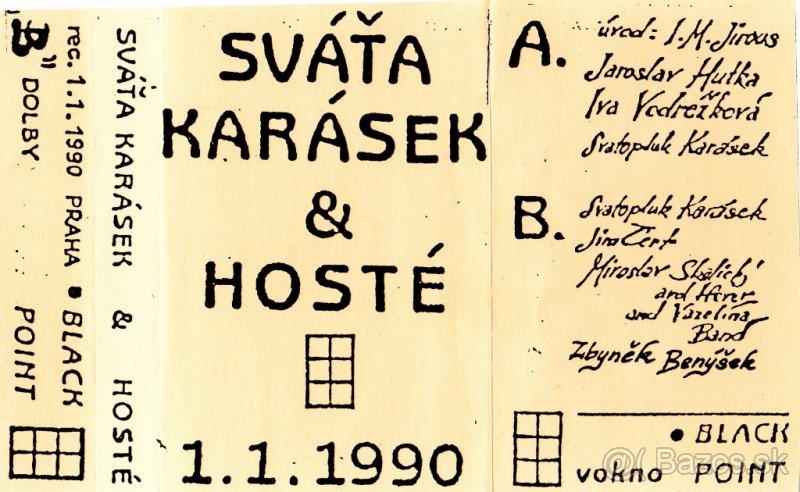 rec. 1.1.1990 PRAHA • BLACK POINT
"B" DOLBY
SVÁŤA KARÁSEK & HOSTÉ
SVÁŤA
KARÁSEK
&
HOSTÉ
1.1.1990
A.
úvod: I.M. Jirous
Jaroslav Hutka
Iva Vodrežková
Svatopluk Karásek
B.
Svatopluk Karásek
Jim Čert
Miroslav Skalický
and
and Vazelína
Band
Zbyněk Benýšek
• BLACK
vokno POINT
@( Bazos.sk